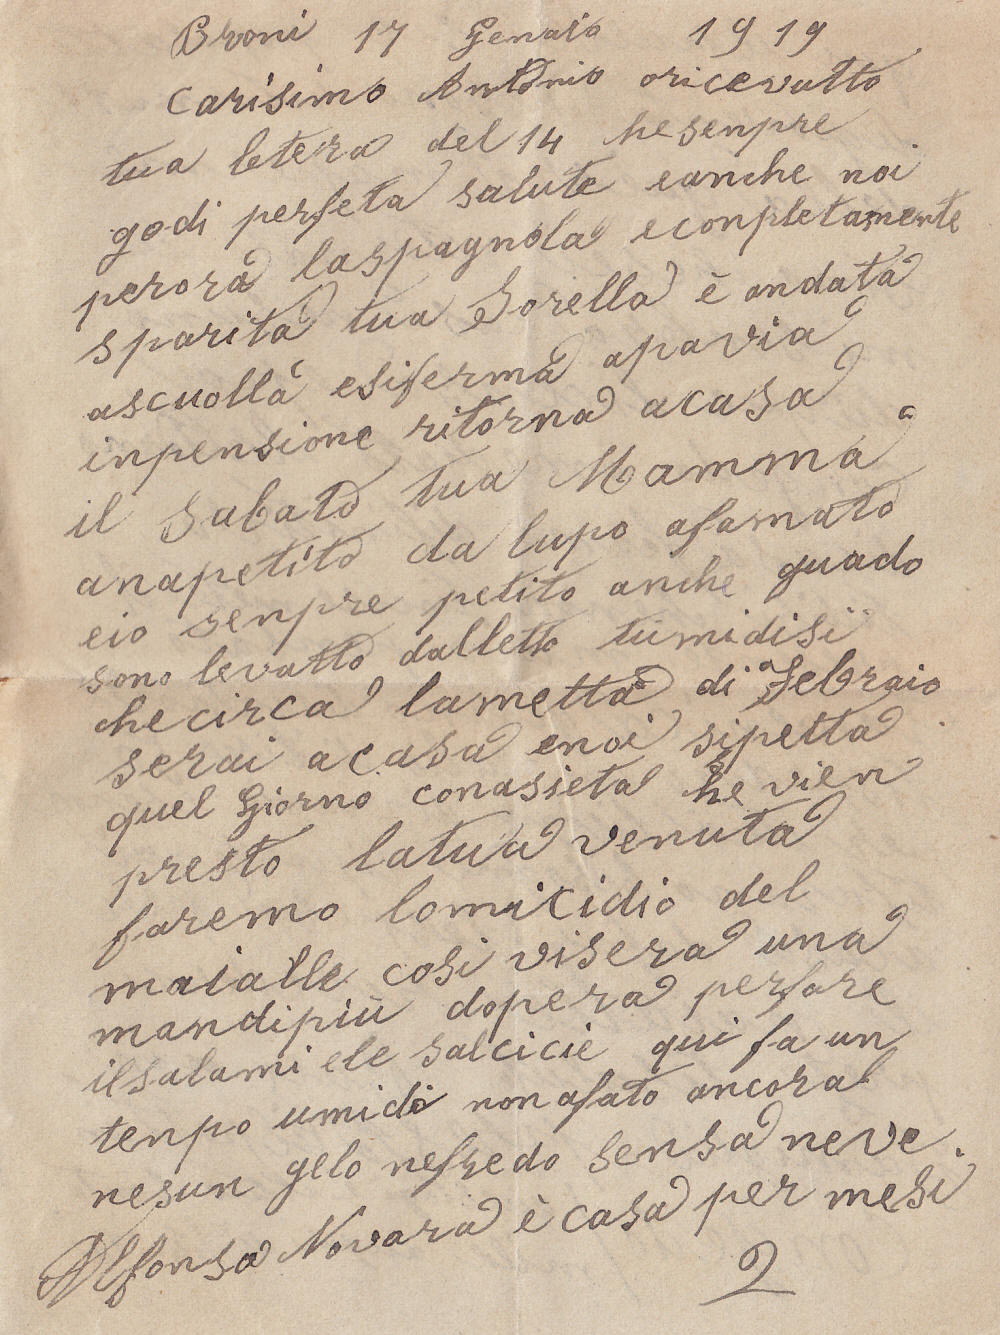 Broni 17 Genaio 1919
Carisimo Antonio oricevutto
tua letera del 14 he senpre
godi perfeta salute eanche noi
perora laspagnola econpletamente
sparita tua Sorella è andata
ascuolla esiferma apavia
inpensione ritorna acasa
il Sabato tua Mamma
anapetito da lupo afamato
eio senpre petito anche quado
sono levatto dalletto tumidisi
checirca lametta di Febraio
serai acasa enoi sipetta
quel Giorno conasieta he vien
presto latua venuta
faremo lomicidio del
maialle cosi visera una
mandipiù dopera perfare
ilsalami ele salcicie qui fa un
tenpo umido nonafato ancora
nesun gelo nefredo sensa neve.
Alfonsa Novara è casa per mesi
2